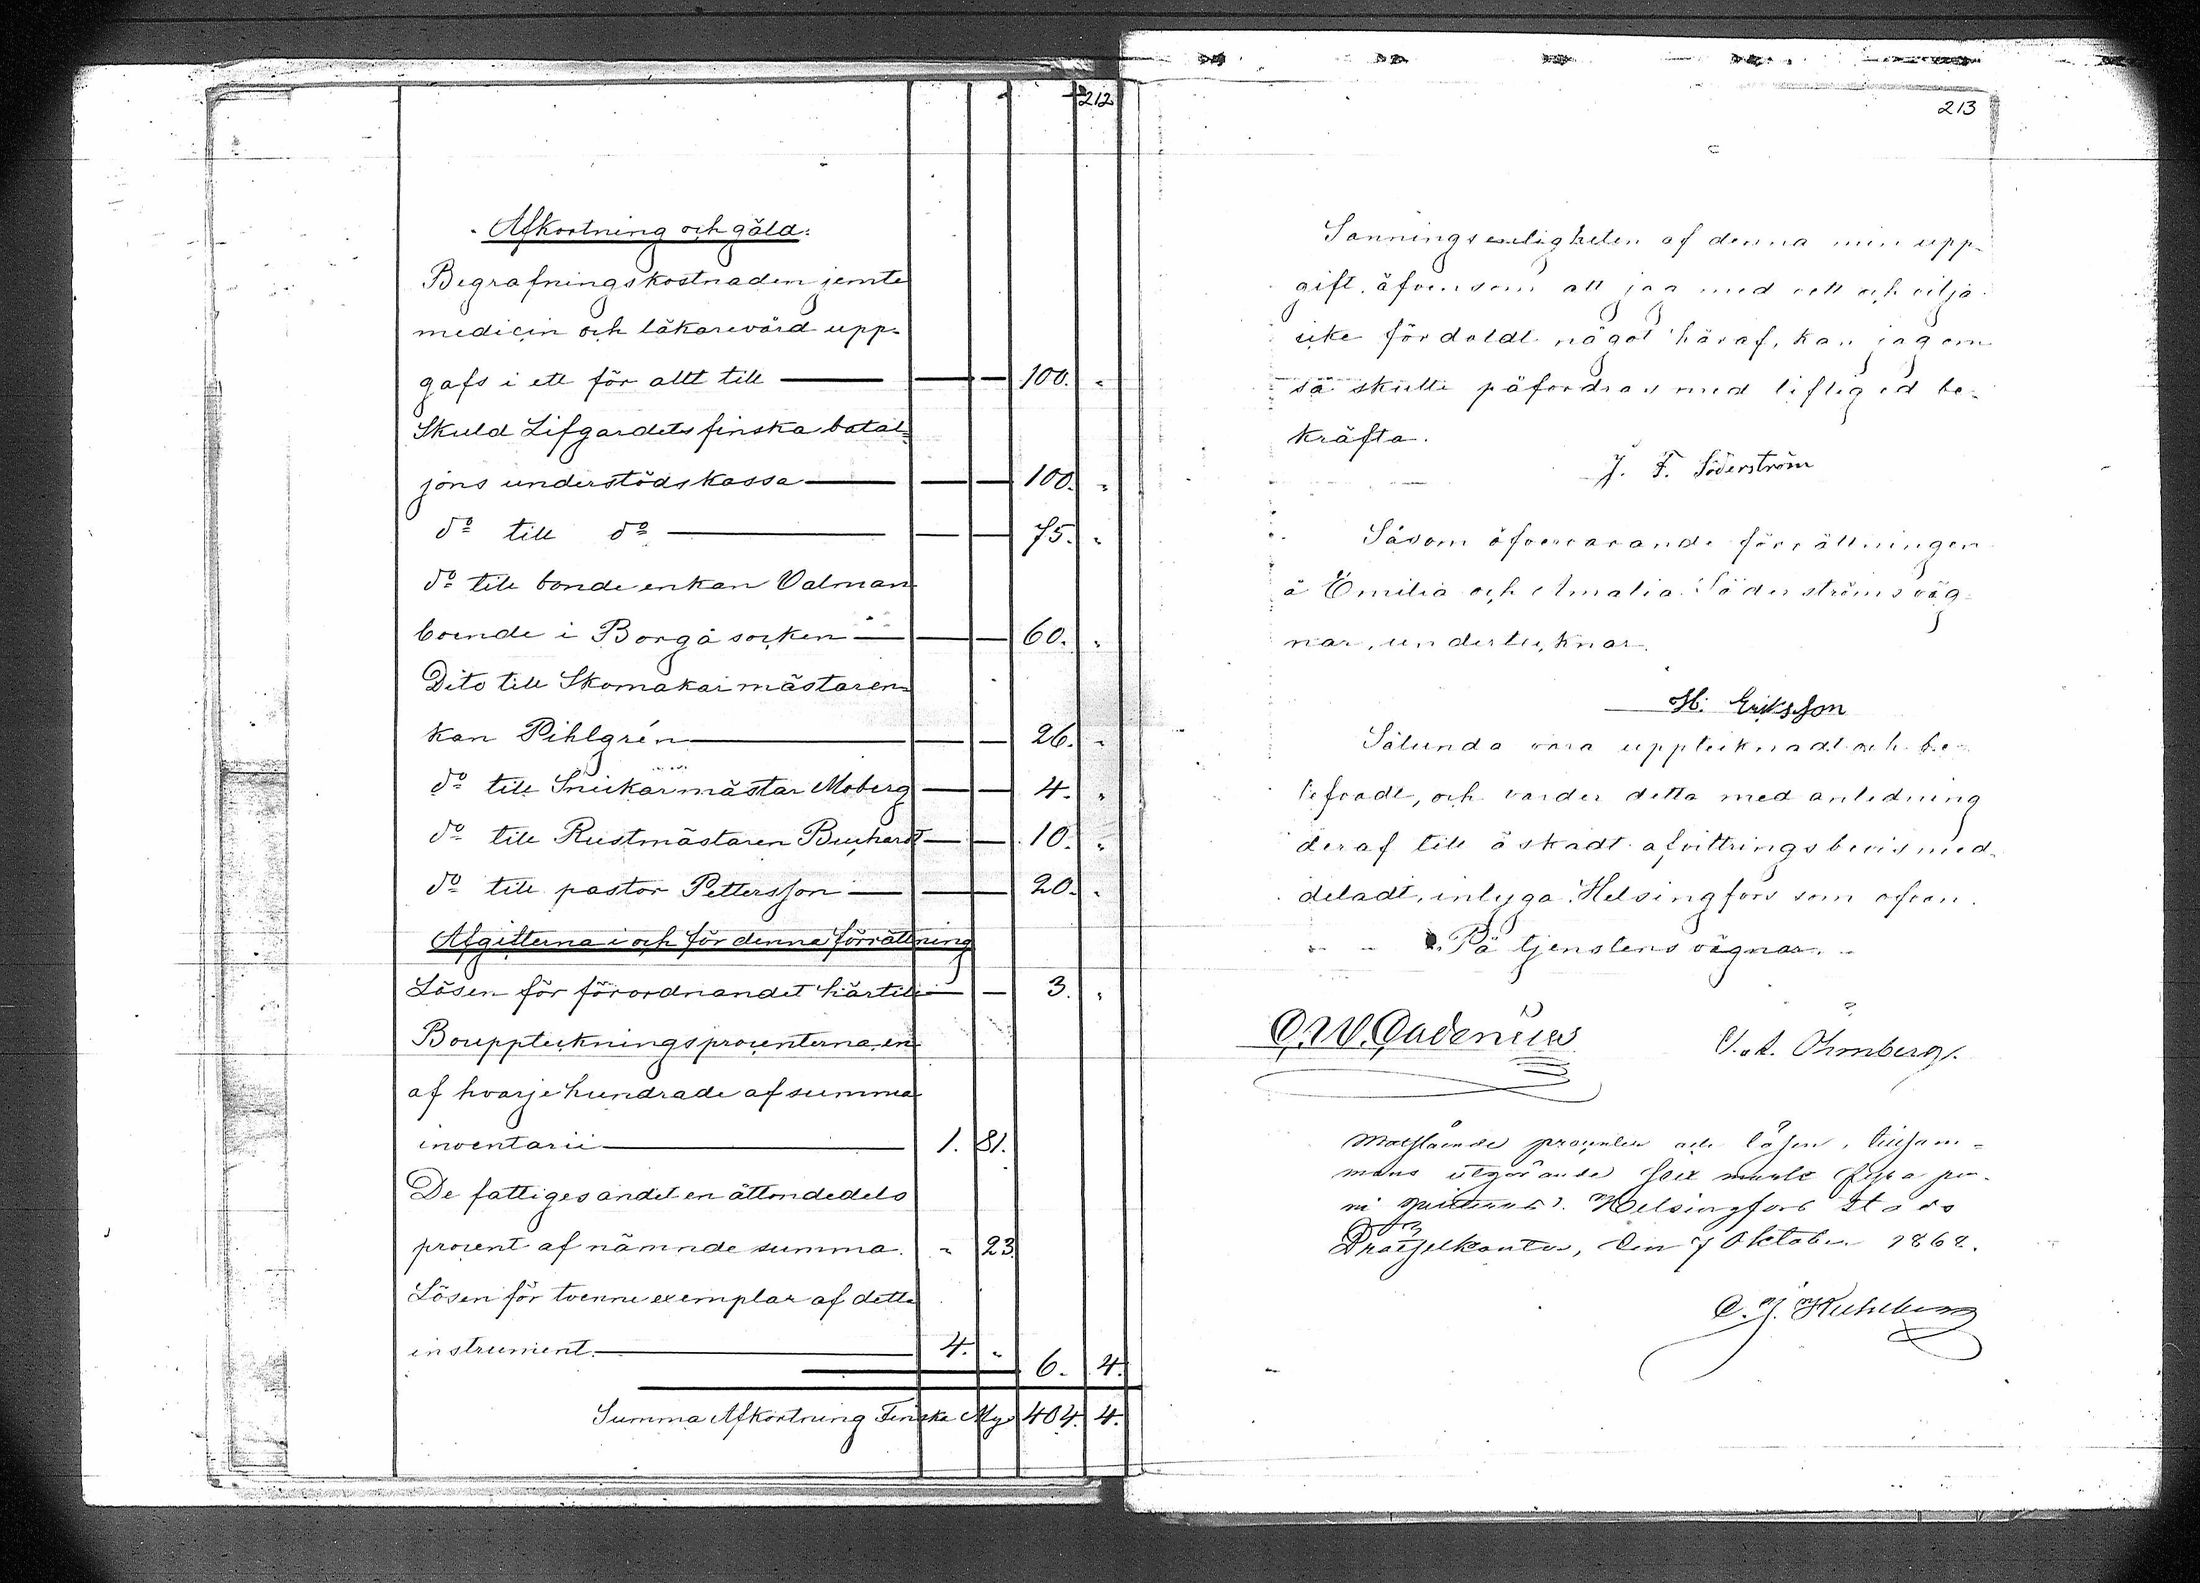 212
Afkortning och gäld:
Begrafningskostnaden jemte
medicin och läkarevård upp-
gafs i ett för allt till — 100. "
Skuld Lifgardets finska batal-
jons understödskassa — 100. "
d:o till d:o — 75. "
d:o till bondeenkan Valman
boende i Borgå socken — 60. "
Dito till Skomakarmästaren-
kan Pihlgrén — 26. "
d:o till Snickarmästar Moberg — 4. "
d:o till Rustmästaren Burhardt — 10. "
d:o till pastor Pettersson — 20. "
Afgifterna i och för denna förrättning
Lösen för förordnandet härtill — 3. "
Bouppteckningsprocenterna en
af hvarje hundrade af summa
inventarii — 1. 81.
De fattiges andel en åttondedels
procent af nämnde summa. " 23.
Lösen för tvenne exemplar af detta
instrument. — 4. " 6. 4.
Summa Afkortning Finska Mg 404. 4.
213
Sanningsenligheten af denna min upp-
gift, äfvensom att jag med vett och vilja
icke fördoldt något häraf, kan jag om
så skulle påfordras med liflig ed be-
kräfta.
J. F. Söderström
Såsom öfvervarande förrättningen
å Emilia och Amalia Söderströms väg-
nar, undertecknar.
H. Eriksson
Sålunda vara upptecknadt och be-
lefvadt, och varder detta med anledning
deraf till äskadt afvittringsbevis med-
deladt, intyga. Helsingfors som ofvan.
På tjenstens vägnar.
C. W. Gadenius V. A. Öhmberg.
Motstående procenter och lösen, tillsam-
mans utgörande sex mark fyra pen-
ni Helsingfors Stads
Drätselkontor, den 7 Oktober 1868.